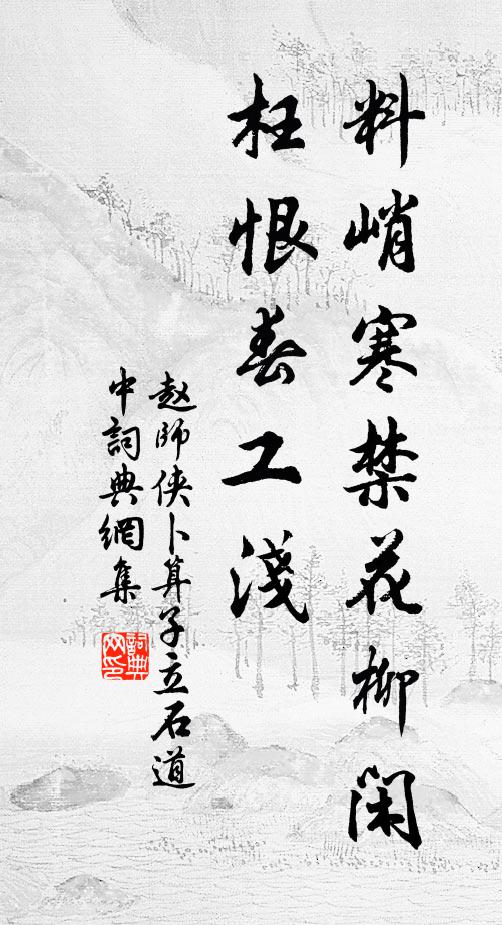 料峭寒禁花柳闲
枉恨春工淺
赵師俠卜算子立石道
中詞典網集
詞典网印